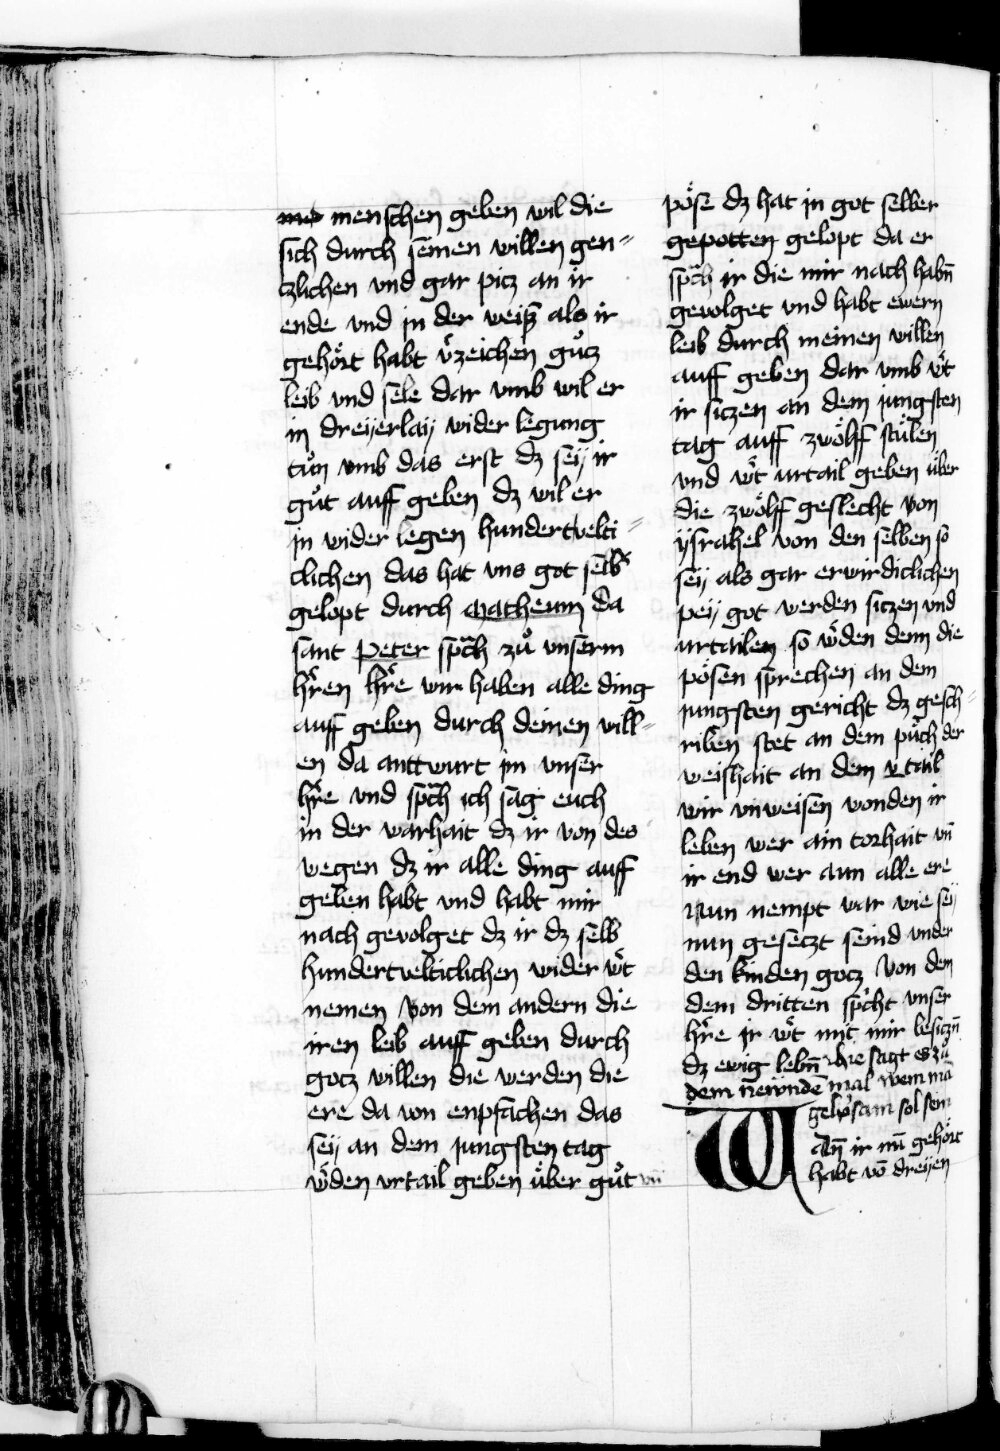 menschen geben wil die
sich durch seinen willen gen⸗
czlichen vnd gar picz an ir
ende vnd in der weiß als ir
gehoͤrt habt v̓zeichen guͦcz
leib vnd sele dar vmb wil er
in dreyerlaÿ wider legung
tuͦn vmb das erst dz seÿ ir
guͦt auff geben dz wil er
in wider legen hundertvelti⸗
clichen das hat vns got selb̓
gelopt durch Matheum da
sant Peter sp̄ch zuͦ vnserm
hr̄en hr̄e wir haben alle ding
auff geben durch deinen will⸗
en da anttwurt im vnser
hr̄e vnd sp̄ch ich sag euch
in der warhait dz ir von des
wegen dz ir alle ding auff
geben habt vnd habt mir
nach gevolget dz ir dz selb
hundertvelticlichen wider w̓t
nemen Von dem andern die
iren leib auff geben durch
gocz willen die werden die
ere da von enpfachen das
seÿ an dem jungsten tag
w̓den vrtail geben uͤber guͦt vn̄
poͤse dz hat in got selber
gepotten gelopt da er
sp̄ch ir die mir nach habn̄
gevolget vnd habt ewern
leib durch meinen willen
auff geben dar vmb w̓t
ir siczen an dem jungsten
tag auff zwoͤlff stuͤlen
vnd w̓t vrtail geben uͤber
die zwoͤlff geslecht von
ÿsrahel von den selben so
seÿ als gar erwirdiclichen
peÿ got werden siczen vnd
vrtailen so w̓den denn die
poͤsen sprechen an dem
jungsten gericht dz gesch⸗
riben stet an dem puͦch der
weishait an dem tail
wir vnweisen wonden ir
leben wer ain torhait vn̄
ir end wer aun alle ere
Nun nempt war wie seÿ
nun geseczt seind vnder
den kinden gocz Von dem
dem dritten sp̓cht vnser
hr̄e ir w̓t mit mir besiczn̄
dz ewig lebn̄ hie sagt es zuͦ
dem newnden̄ mal wem ma̅
gehorsam sol sein
Wan̄ ir nu̅ gehoͤrt
habt vo̅ dreÿen